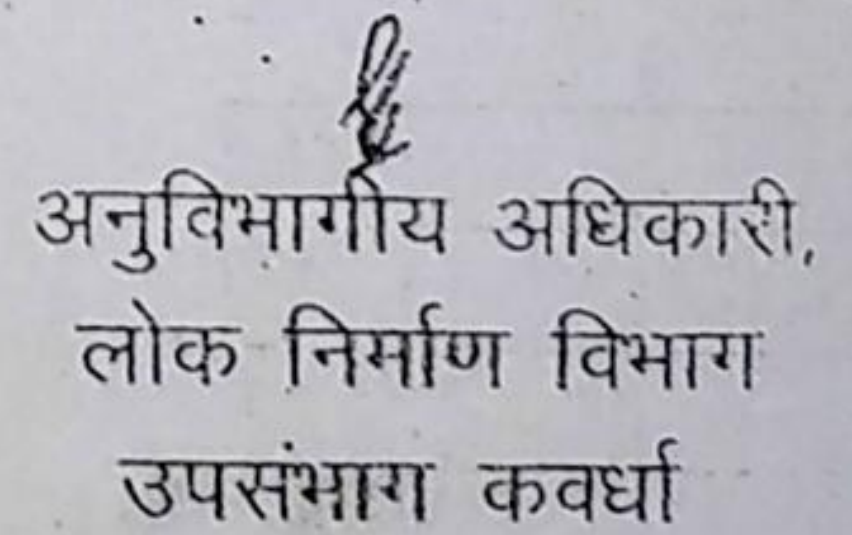 अनुविभागीय अधिकारी,
लोक निर्माण विभाग
उपसंभाग कवर्धा